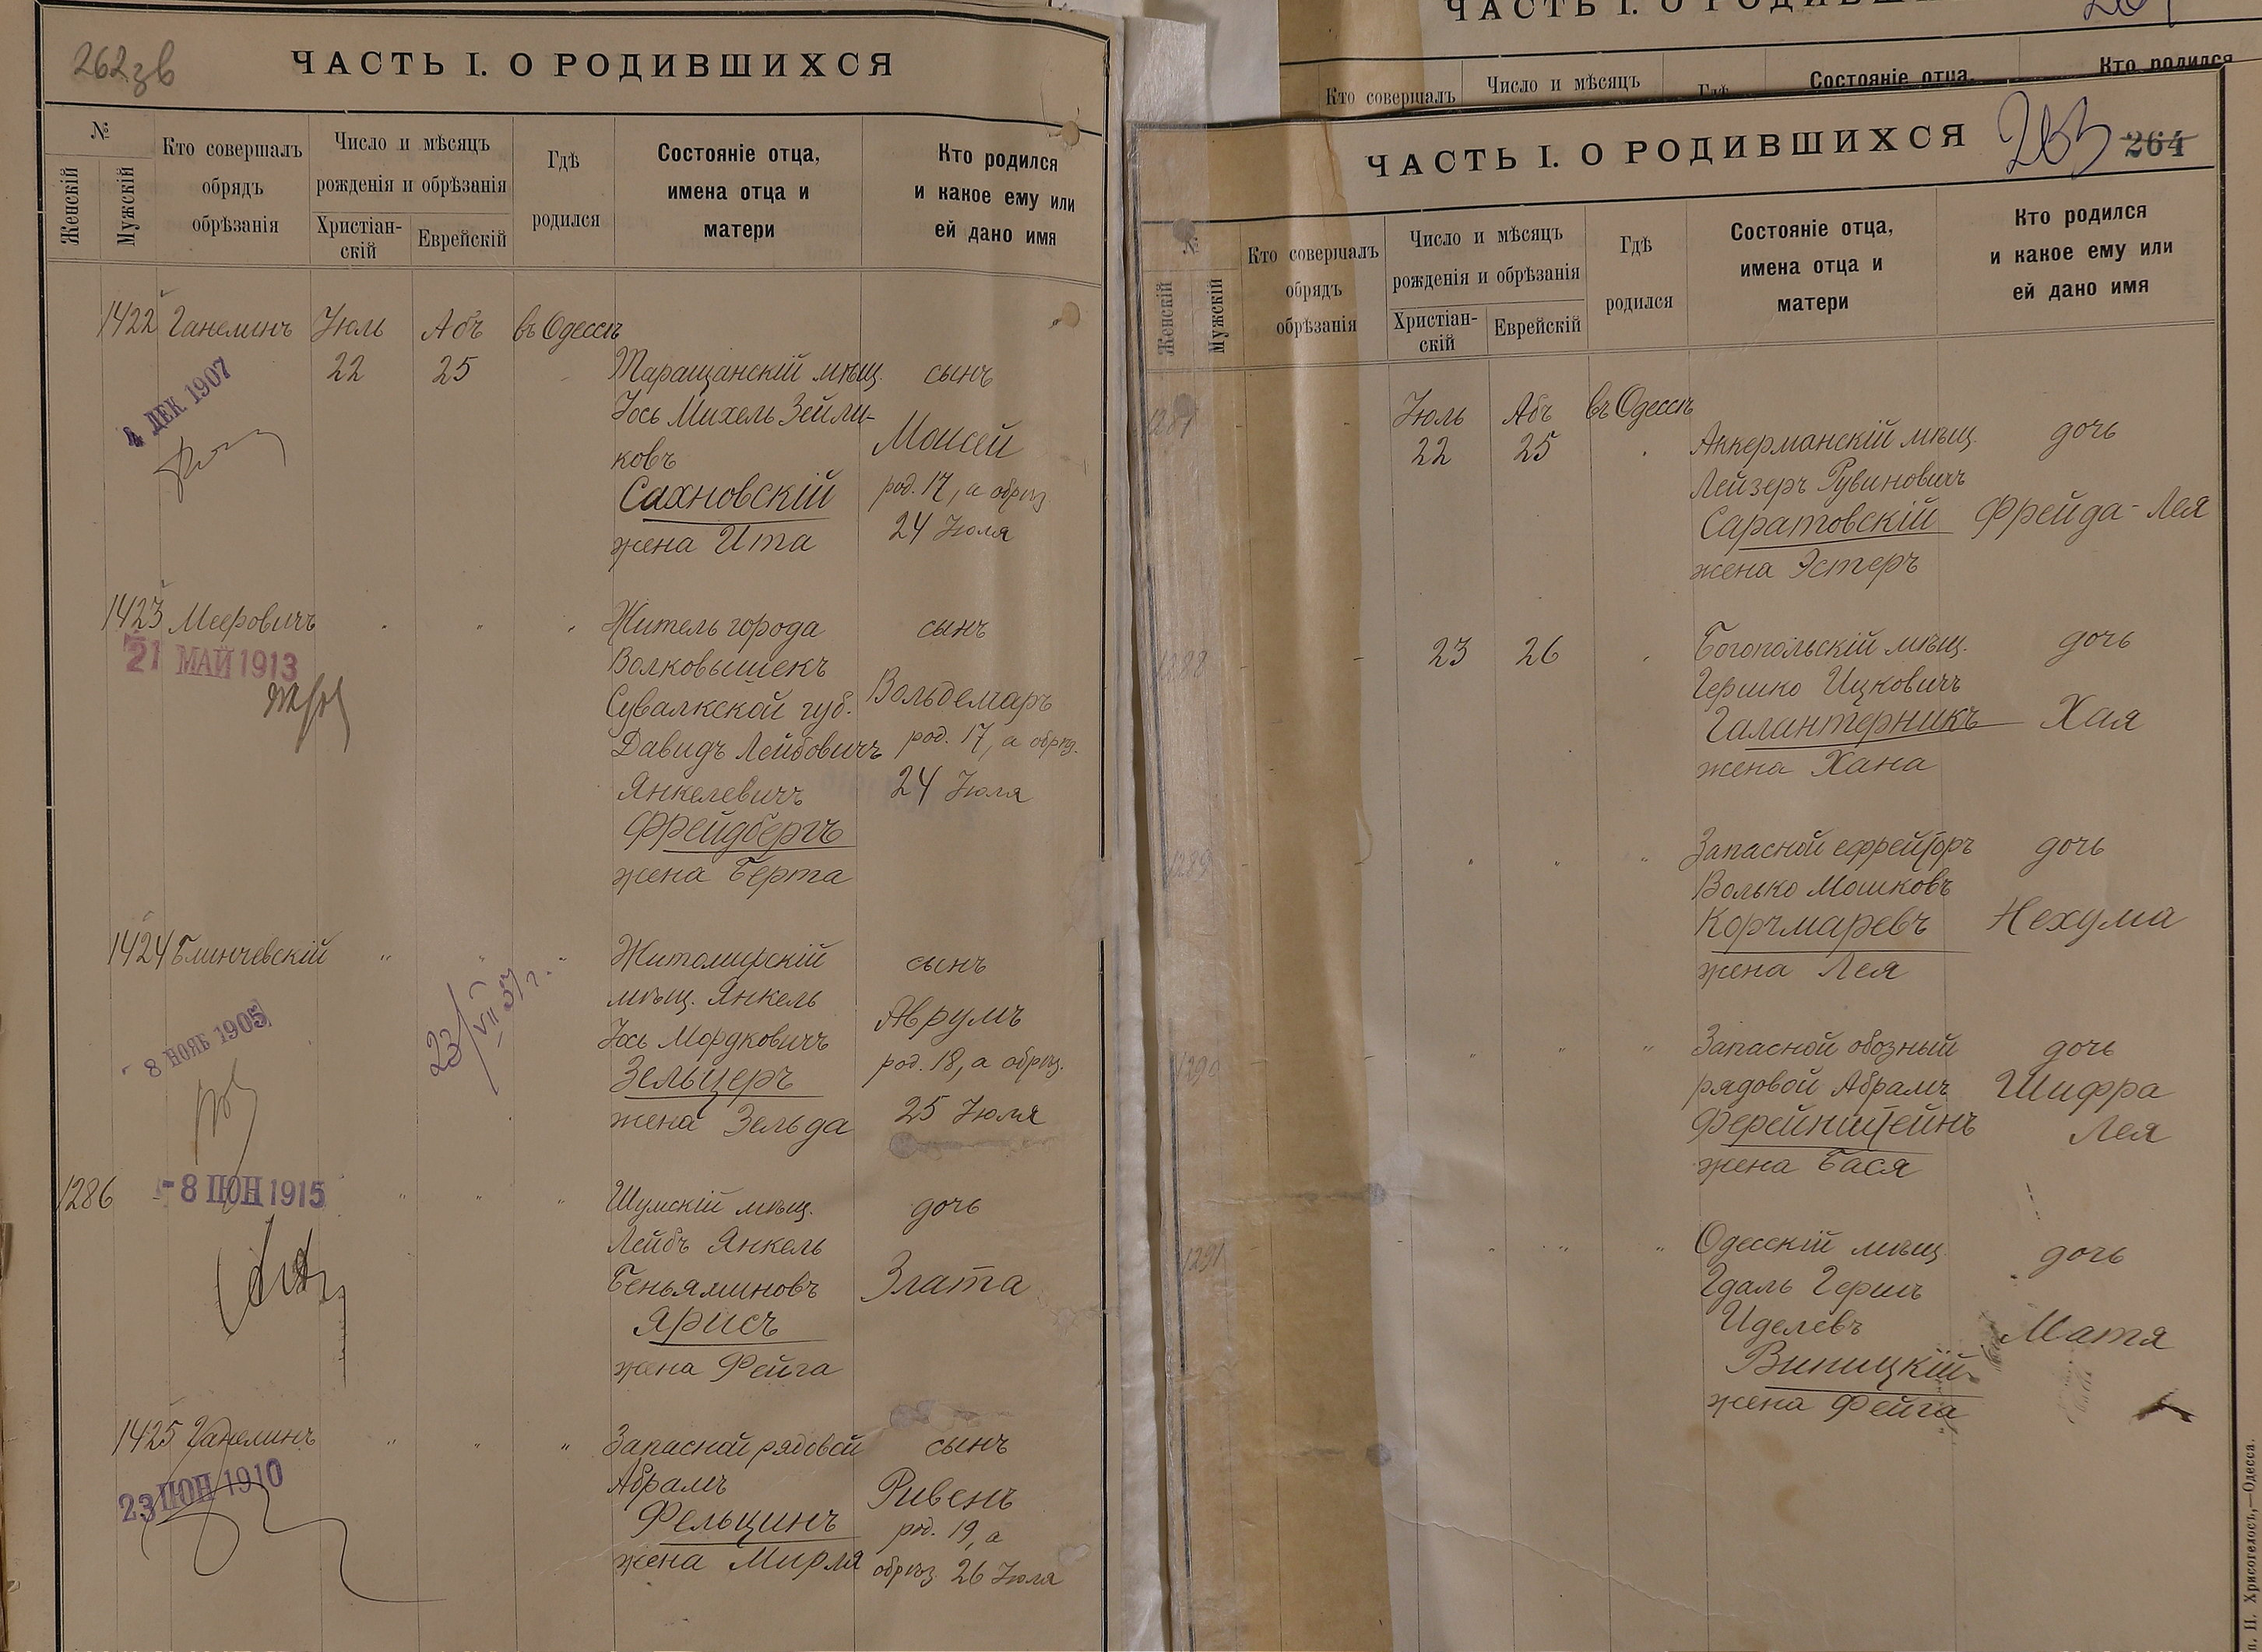 262зв
ЧАСТЬ I. О РОДИВШИХСЯ
№
Женскій
Мужскій
Кто совершалъ
обрядъ
обрѣзанія
Число и мѣсяцъ
рожденія и обрѣзанія
Христіан-
скій
Еврейскій
Гдѣ
родился
Состояніе отца,
имена отца и
матери
Кто родился
и какое ему или
ей дано имя
1422 Ганелинъ Іюль Абъ въ Одессѣ
22 25
Таращанскій мѣщ. сынъ
Іось Михель Зейли-
ковъ
Моисей
Сахновскій род. 17, а обрѣз
жена Ита 24 Іюля
4 ДЕК 1907
1423 Мееровичъ " " " Житель города сынъ
21 МАЙ 1913
Волковышекъ
Сувалкской губ. Вольдемаръ
Давидъ Лейбовичъ род. 17, а обрѣз.
Янкелевичъ 24 Іюля
Фрейдбергъ
жена Берта
1424 Блинчевскій " " " Житомирскій сынъ
мѣщ. Янкель
Іось Мордковичъ Аврумъ
Зельцеръ род. 18, а обрѣз.
жена Зельда 25 Іюля
8 НОЯБ 1905
23/VII 37 г.
1286 " " " Шумскій мѣщ. дочь
-8 ІЮН 1915
Лейбъ Янкель
Беньяминовъ Злата
Ярисъ
жена Фейга
1425 Ганелинъ " " " Запасной рядовой сынъ
23 ІЮН 1910
Абрамъ Рувенъ
Фельцинъ род. 19, а
жена Мирля обрѣз 26 Іюля
ЧАСТЬ I. О РОДИВШИХСЯ
Кто совершалъ
Число и мѣсяцъ
Гдѣ
Состояніе отца,
Кто родился
ЧАСТЬ I. О РОДИВШИХСЯ
263 264
№
Женскій
Мужскій
Кто совершалъ
обрядъ
обрѣзанія
Число и мѣсяцъ
рожденія и обрѣзанія
Христіан-
скій
Еврейскій
Гдѣ
родился
Состояніе отца,
имена отца и
матери
Кто родился
и какое ему или
ей дано имя
1287 - - Іюль Абъ въ Одессѣ
22 25 Аккерманскій мѣщ. дочь
Лейзеръ Рувиновичъ
Саратовскій Фрейда-Лея
жена Эстеръ
1288 - - 23 26 " Богопольскій мѣщ. дочь
Гершко Ицковичъ
Галантерникъ Хая
жена Хана
1289 - " " " Запасной ефрейторъ дочь
Волько Мошковъ
Корчмаревъ Нехума
жена Лея
1290 - - " " " Запасной обозный дочь
рядовой Абрамъ Шифра
Ферейнштейнъ Лея
жена Бася
1291 - - " " " Одесскій мѣщ. дочь
Гдаль Гершъ
Иделевъ Матя
Виницкій
жена Фейга
П. Хрисогелосъ,—Одесса.